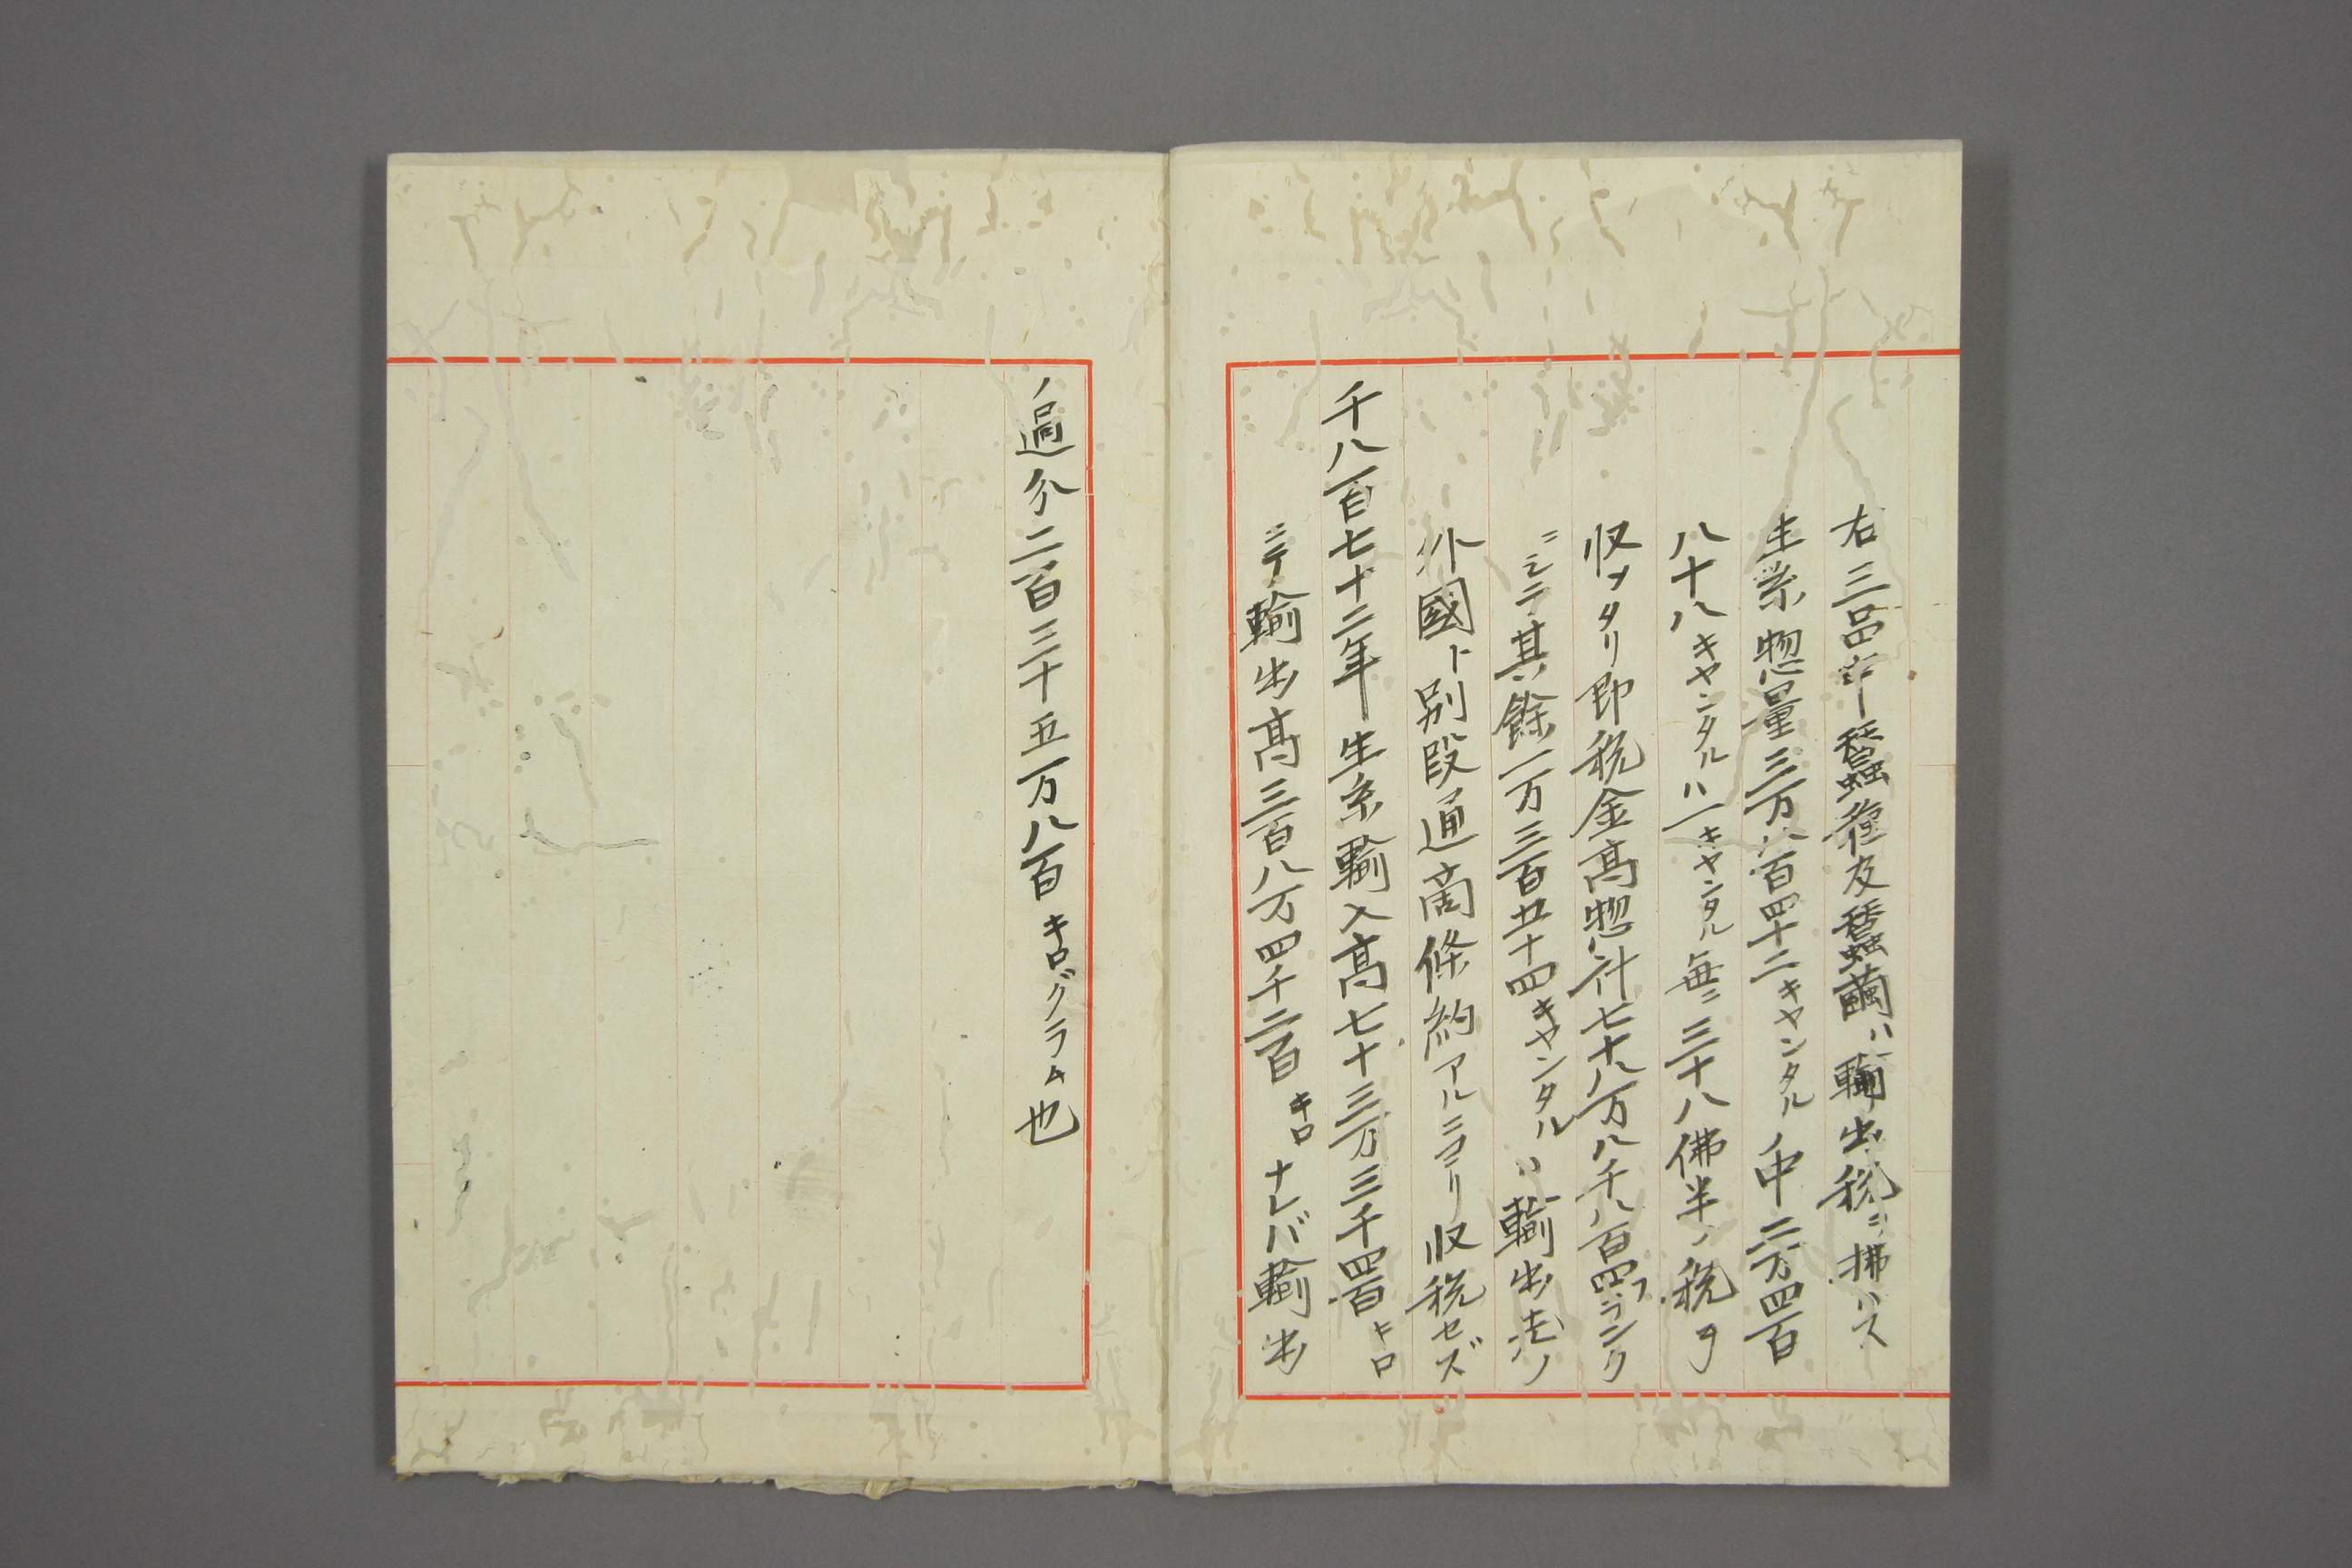 右三品中蠶種及蠶繭ハ輸出税ニ拂ハス
生糸惣量三万八百四十二キヤンタル中二万四百
八十八キヤンタルハ一キヤンタル毎ニ三十八佛半ノ税ヲ
収メタリ即税金高惣計七十八万八千八百四フランク
ニシテ其餘一万三百五十四キヤンタルハ輸出先ノ
外國ト別段通商條約アルニヨリ収税セズ
千八百七十二年生糸輸入高七十三万三千四百キロ
ニテ輸出高三百八万四千二百キロナレバ輸出
ノ過分二百三十五万八百キログラム也